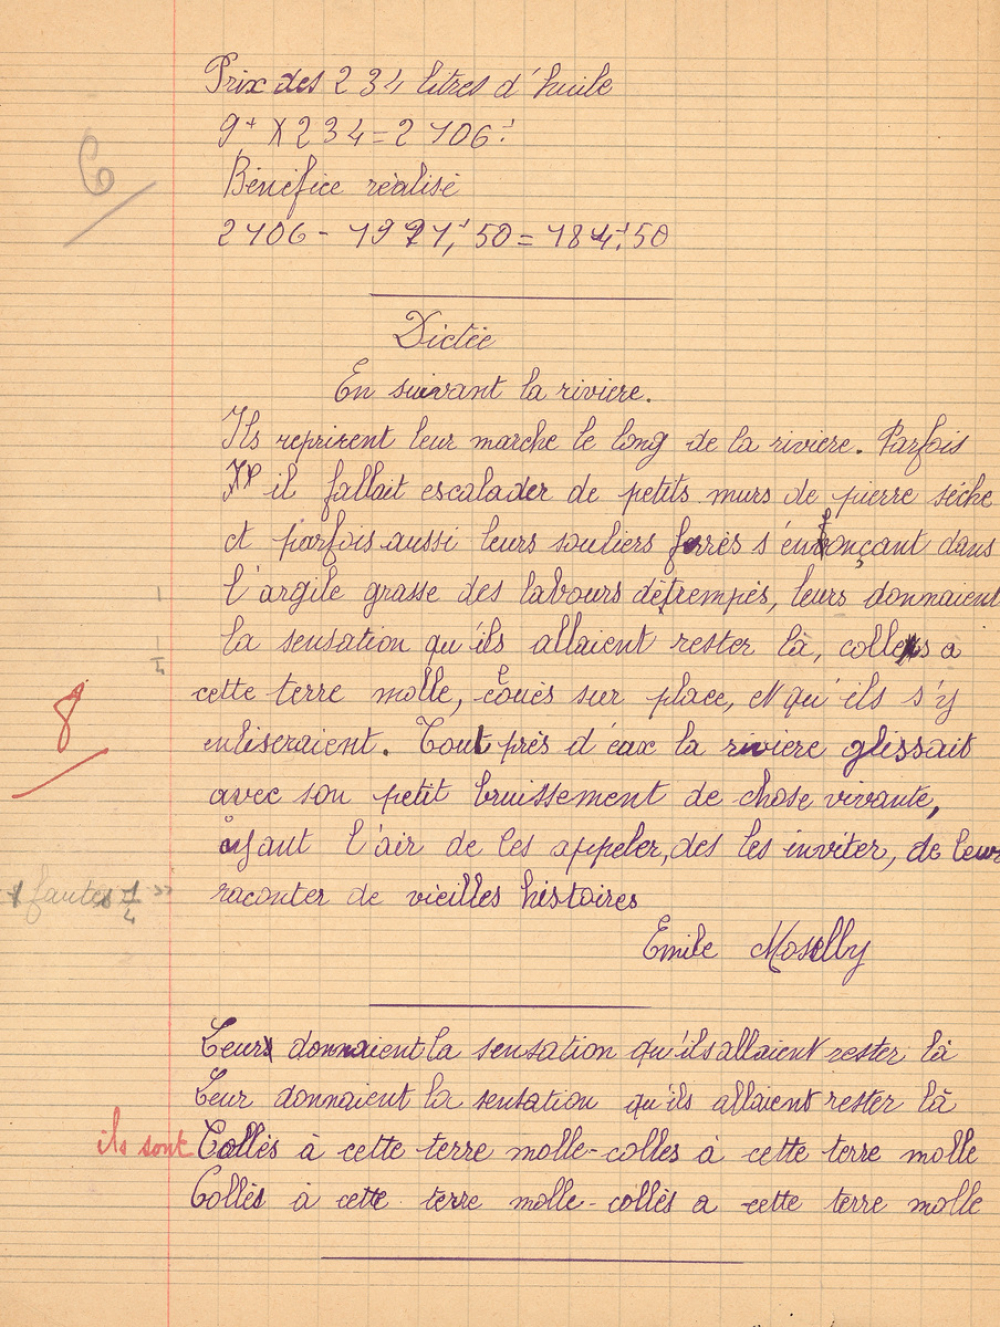 Prix des 234 litres d'huile
9f X 234 = 2106f
6
Bénéfice réalisé
2106 - 1921f,50 = 184f,50
Dictée
En suivant la rivière.
Ils reprirent leur marche le long de la rivière. Parfois
il fallait escalader de petits murs de pierre sèche
et parfois aussi leurs souliers ferrés s'enfonçant dans
1
l'argile grasse des labours détrempés, leurs donnaient
la sensation qu'ils allaient rester là, collés a
1/4
cette terre molle, coués sur place, et qu'ils s'y
8
enliseraient. Tout près d'eax la rivière glissait
avec son petit bruissement de chose vivante,
ayant l'air de les appeler, des les inviter, de leur
fautes 1/4
raconter de vieilles histoires
Emile Moselly
Leurs donnaient la sensation qu'ils allaient rester là
Leur donnaient la sensation qu'ils allaient rester là
ils sont Collés à cette terre molle - collés à cette terre molle
Collés à cette terre molle - collés a cette terre molle